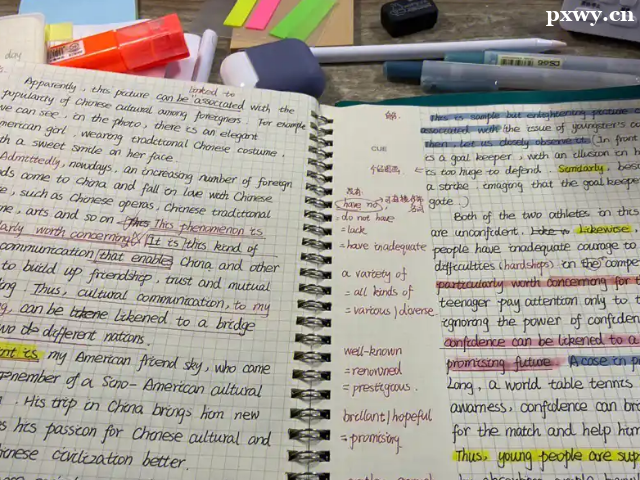 pxwy.cn
day
linked to
Apparently, this picture can be associated with the
popularity of Chinese cultural among foreigners. For example
we can see, in the photo, there is an elegant
merican girl, wearing traditional Chinese costume,
th a sweet smile on her face.
Admittedly, nowdays, an increasing number of foreign
ds come to China and fall in love with Chinese
e, such as Chinese operas, Chinese traditional
me, arts and so on. This phenomenon is
larly worth concerning It is this kind of
communication that enables China and other
to build up friendship, trust and mutual
ng. Thus, cultural communication, to my
g, can be likened to a bridge
two different nations.
nt is, my American friend sky, who came
member of a Sino-American cultural
. His trip in China brings him new
es his passion for Chinese cultural and
hinese civilization better.
CUE
have no
= do not have
= lack
= have inadequate
a variety of
= all kinds of
= various / diverse.
well-known
= renowned
= prestigious.
brillant / hopeful
= promising.
This is sample but enlightening picture
associated with the issue of youngster's co
then let us closely observe it. In fron
is a goal keeper, with an illusion in h
is too huge to defend. Similarly, besi
a strike: imaging that the goal keepe
gate.
Both of the two athletes in this
are unconfident. Likewise
people have inadequate courage to
difficulties (hardships) in the compe
particularly worth concerning for t
teenager pay attention only to t
ignoring the power of confiden
confidence can be likened to a
promising future. A case in p
Long, a world table tennis
awarness, confidence can bri
for the match and help him
Thus, young people are sup